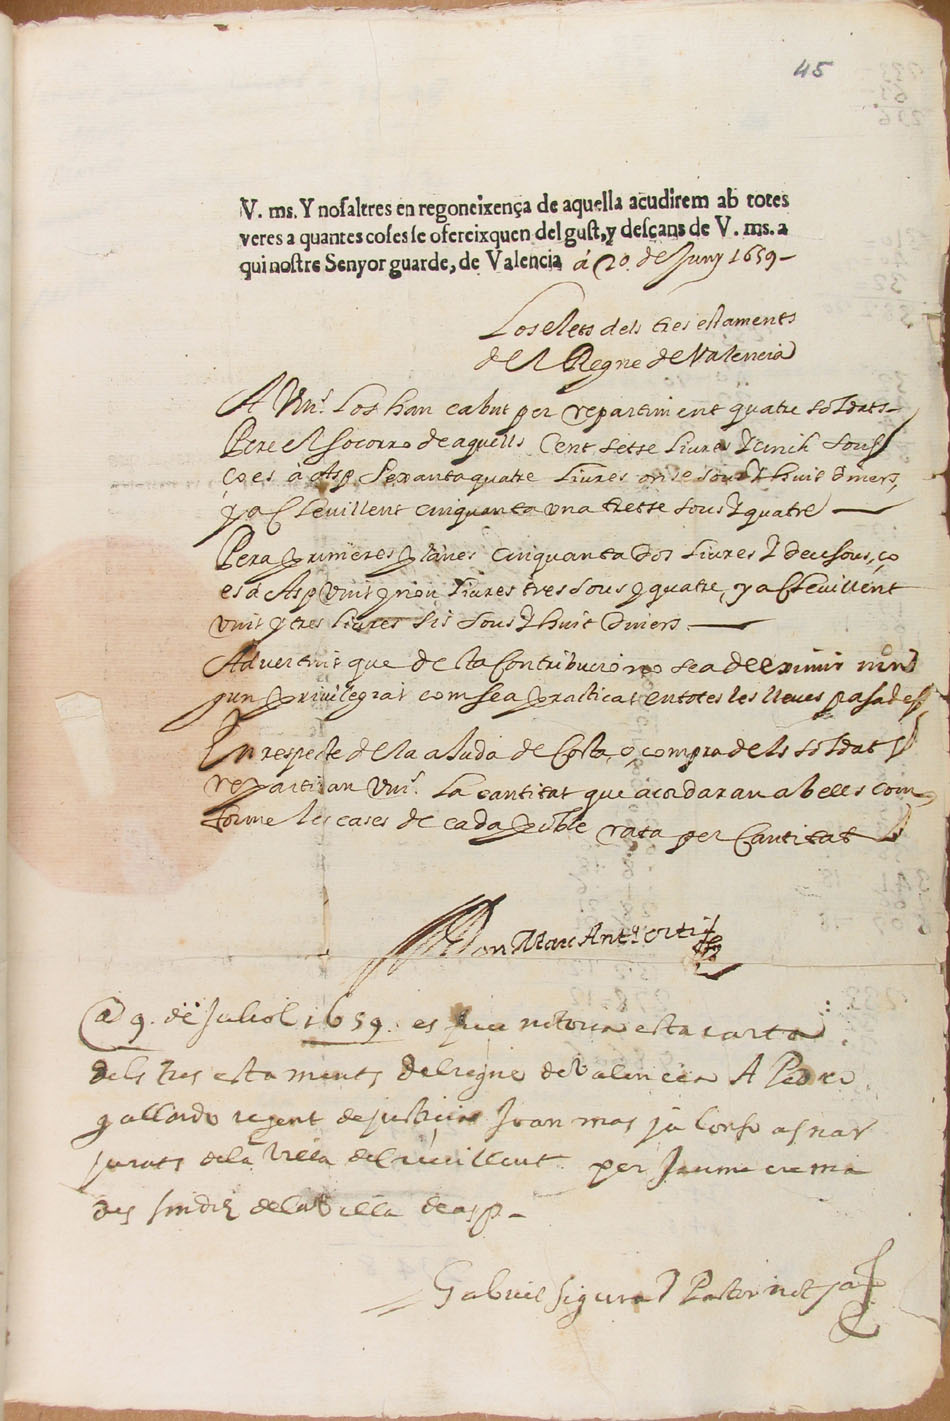 45
V. ms. Y nosaltres en regoneixença de aquella acudirem ab totes
veres a quantes coses se ofereixquen del gust, y descans de V. ms. a
qui nostre Senyor guarde, de Valencia á 20 de Juny 1659
Los elets dels tres estaments
del Regne de Valencia
A Vms. los han cabut per repartiment quatre soldats
Pere el socorro de aquells Cent setse liures y cinch sous
ço es á Asp Sexanta quatre liures onse sous y huit diners,
y a Crevillent cinquanta una tretse sous y quatre
Pera primeres planes cinquanta dos liures y deu sous, ço
es a Asp vint y nou liures tres sous y quatre, y a Crevillent
vint y tres liures sis sous y huit diners.
Advertint que de sta Contribucio no sea de eximir nin
gun privilegiat com sea practicat en totes les lleves pasades,
En respecte de la aJuda de Costa, o compra dels soldats
repartiran Vms. la cantitat que acordaran ab ells com
forme les cases de cada poble rata per Cantitat
Don Marc Ant. Ortis
A 9. de Juliol 1659. es notoria esta carta
dels tres estaments del regne de Valencia A Pedro
gallardo regent de justicia Joan mas y a lonso asnar
jurats de la Villa de Crevillent per Jaume crema
des sindich de la Villa de asp
Gabriel sigura y Pastor not